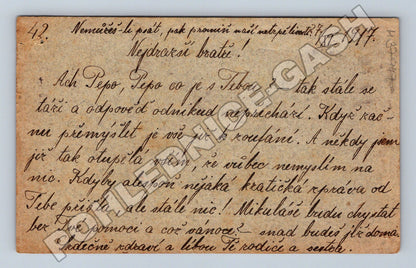 42. Nemůžeš-li psát, pak promiň naší netrpělivosti. 1917.
Nejdražší bratře!
Ach Pepo, Pepo co je s Tebou tak stále se
táži a odpověď odnikud nepřichází. Když zač-
nu přemýšlet je mi do zoufání. A někdy jsem
již tak otupělá vším, že vůbec nemyslím na
nic. Kdyby alespoň nějaká kratičká zpráva od
Tebe přišla, ale stále nic! Mikuláše budu chystat
bez Tvé pomoci a což vánoce? snad budeš již doma.
Srdečně zdraví a líbou Tě rodiče a sestra.
POHLEDNICE-GASH